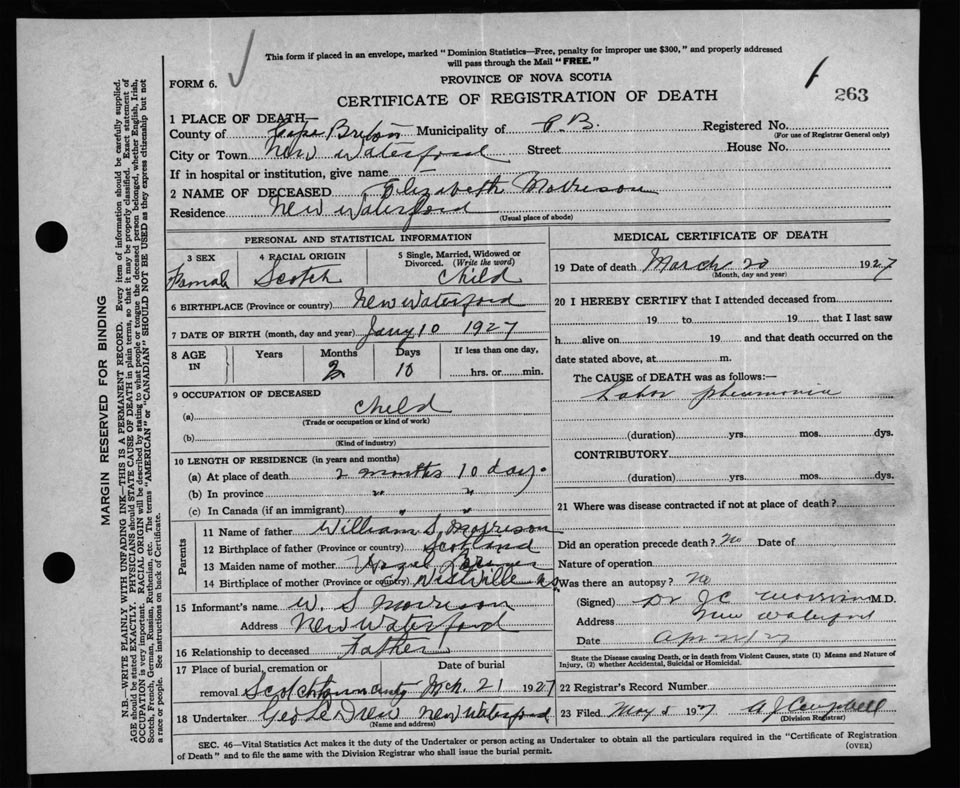 This form if placed in an envelope, marked "Dominion Statistics—Free, penalty for improper use $300," and properly addressed
will pass through the Mail "FREE."
FORM 6.
PROVINCE OF NOVA SCOTIA
263
CERTIFICATE OF REGISTRATION OF DEATH
1 PLACE OF DEATH—
County of Cape Breton Municipality of C.B. Registered No.
(For use of Registrar General only)
City or Town New Waterford Street House No.
If in hospital or institution, give name
2 NAME OF DECEASED Elizabeth Morrison
Residence New Waterford
(Usual place of abode)
PERSONAL AND STATISTICAL INFORMATION
3 SEX 4 RACIAL ORIGIN 5 Single, Married, Widowed or
Divorced. (Write the word)
Female Scotch Child
6 BIRTHPLACE (Province or country) New Waterford
7 DATE OF BIRTH (month, day and year) Jany 10 1927
8 AGE IN Years Months Days If less than one day,
2 10 hrs. or min.
9 OCCUPATION OF DECEASED
(a) Child
(Trade or occupation or kind of work)
(b)
(Kind of industry)
10 LENGTH OF RESIDENCE (in years and months)
(a) At place of death 2 months 10 days
(b) In province " "
(c) In Canada (if an immigrant) " "
Parents
11 Name of father William S. Morrison
12 Birthplace of father (Province or country) Scotland
13 Maiden name of mother Hazel
14 Birthplace of mother (Province or country) Westville NS
15 Informant's name W. S Morrison
Address New Waterford
16 Relationship to deceased Father
17 Place of burial, cremation or Date of burial
removal Scotchtown Mch. 21 1927
18 Undertaker Geo Le Drew New Waterford
(Name and address)
MEDICAL CERTIFICATE OF DEATH
19 Date of death March 20 1927
(Month, day and year)
20 I HEREBY CERTIFY that I attended deceased from
19 to 19 that I last saw
h alive on 19 and that death occurred on the
date stated above, at m.
The CAUSE of DEATH was as follows:—
Lobar pneumonia
(duration) yrs. mos. dys.
CONTRIBUTORY
(duration) yrs. mos. dys.
21 Where was disease contracted if not at place of death?
Did an operation precede death? No Date of
Nature of operation
Was there an autopsy? No
(Signed) Dr JC Morrison M.D.
Address New Waterford
Date
State the Disease causing Death, or in death from Violent Causes, state (1) Means and Nature of
Injury, (2) whether Accidental, Suicidal or Homicidal.
22 Registrar's Record Number
23 Filed May 5 1927 A J Campbell
(Division Registrar)
SEC. 46—Vital Statistics Act makes it the duty of the Undertaker or person acting as Undertaker to obtain all the particulars required in the "Certificate of Registration
of Death" and to file the same with the Division Registrar who shall issue the burial permit. (OVER)
MARGIN RESERVED FOR BINDING
N.B.—WRITE PLAINLY WITH UNFADING INK—THIS IS A PERMANENT RECORD. Every item of information should be carefully supplied.
AGE should be stated EXACTLY. PHYSICIANS should STATE CAUSE OF DEATH in plain terms, so that it may be properly classified. Exact statement of
OCCUPATION is very important. RACIAL ORIGIN will be described by stating to what people or tongue the deceased person belonged, whether English, Irish,
Scotch, French, German, Russian, Ruthenian, etc. The terms "AMERICAN" or "CANADIAN" SHOULD NOT BE USED as they express citizenship but not
a race or people. See instructions on back of Certificate.